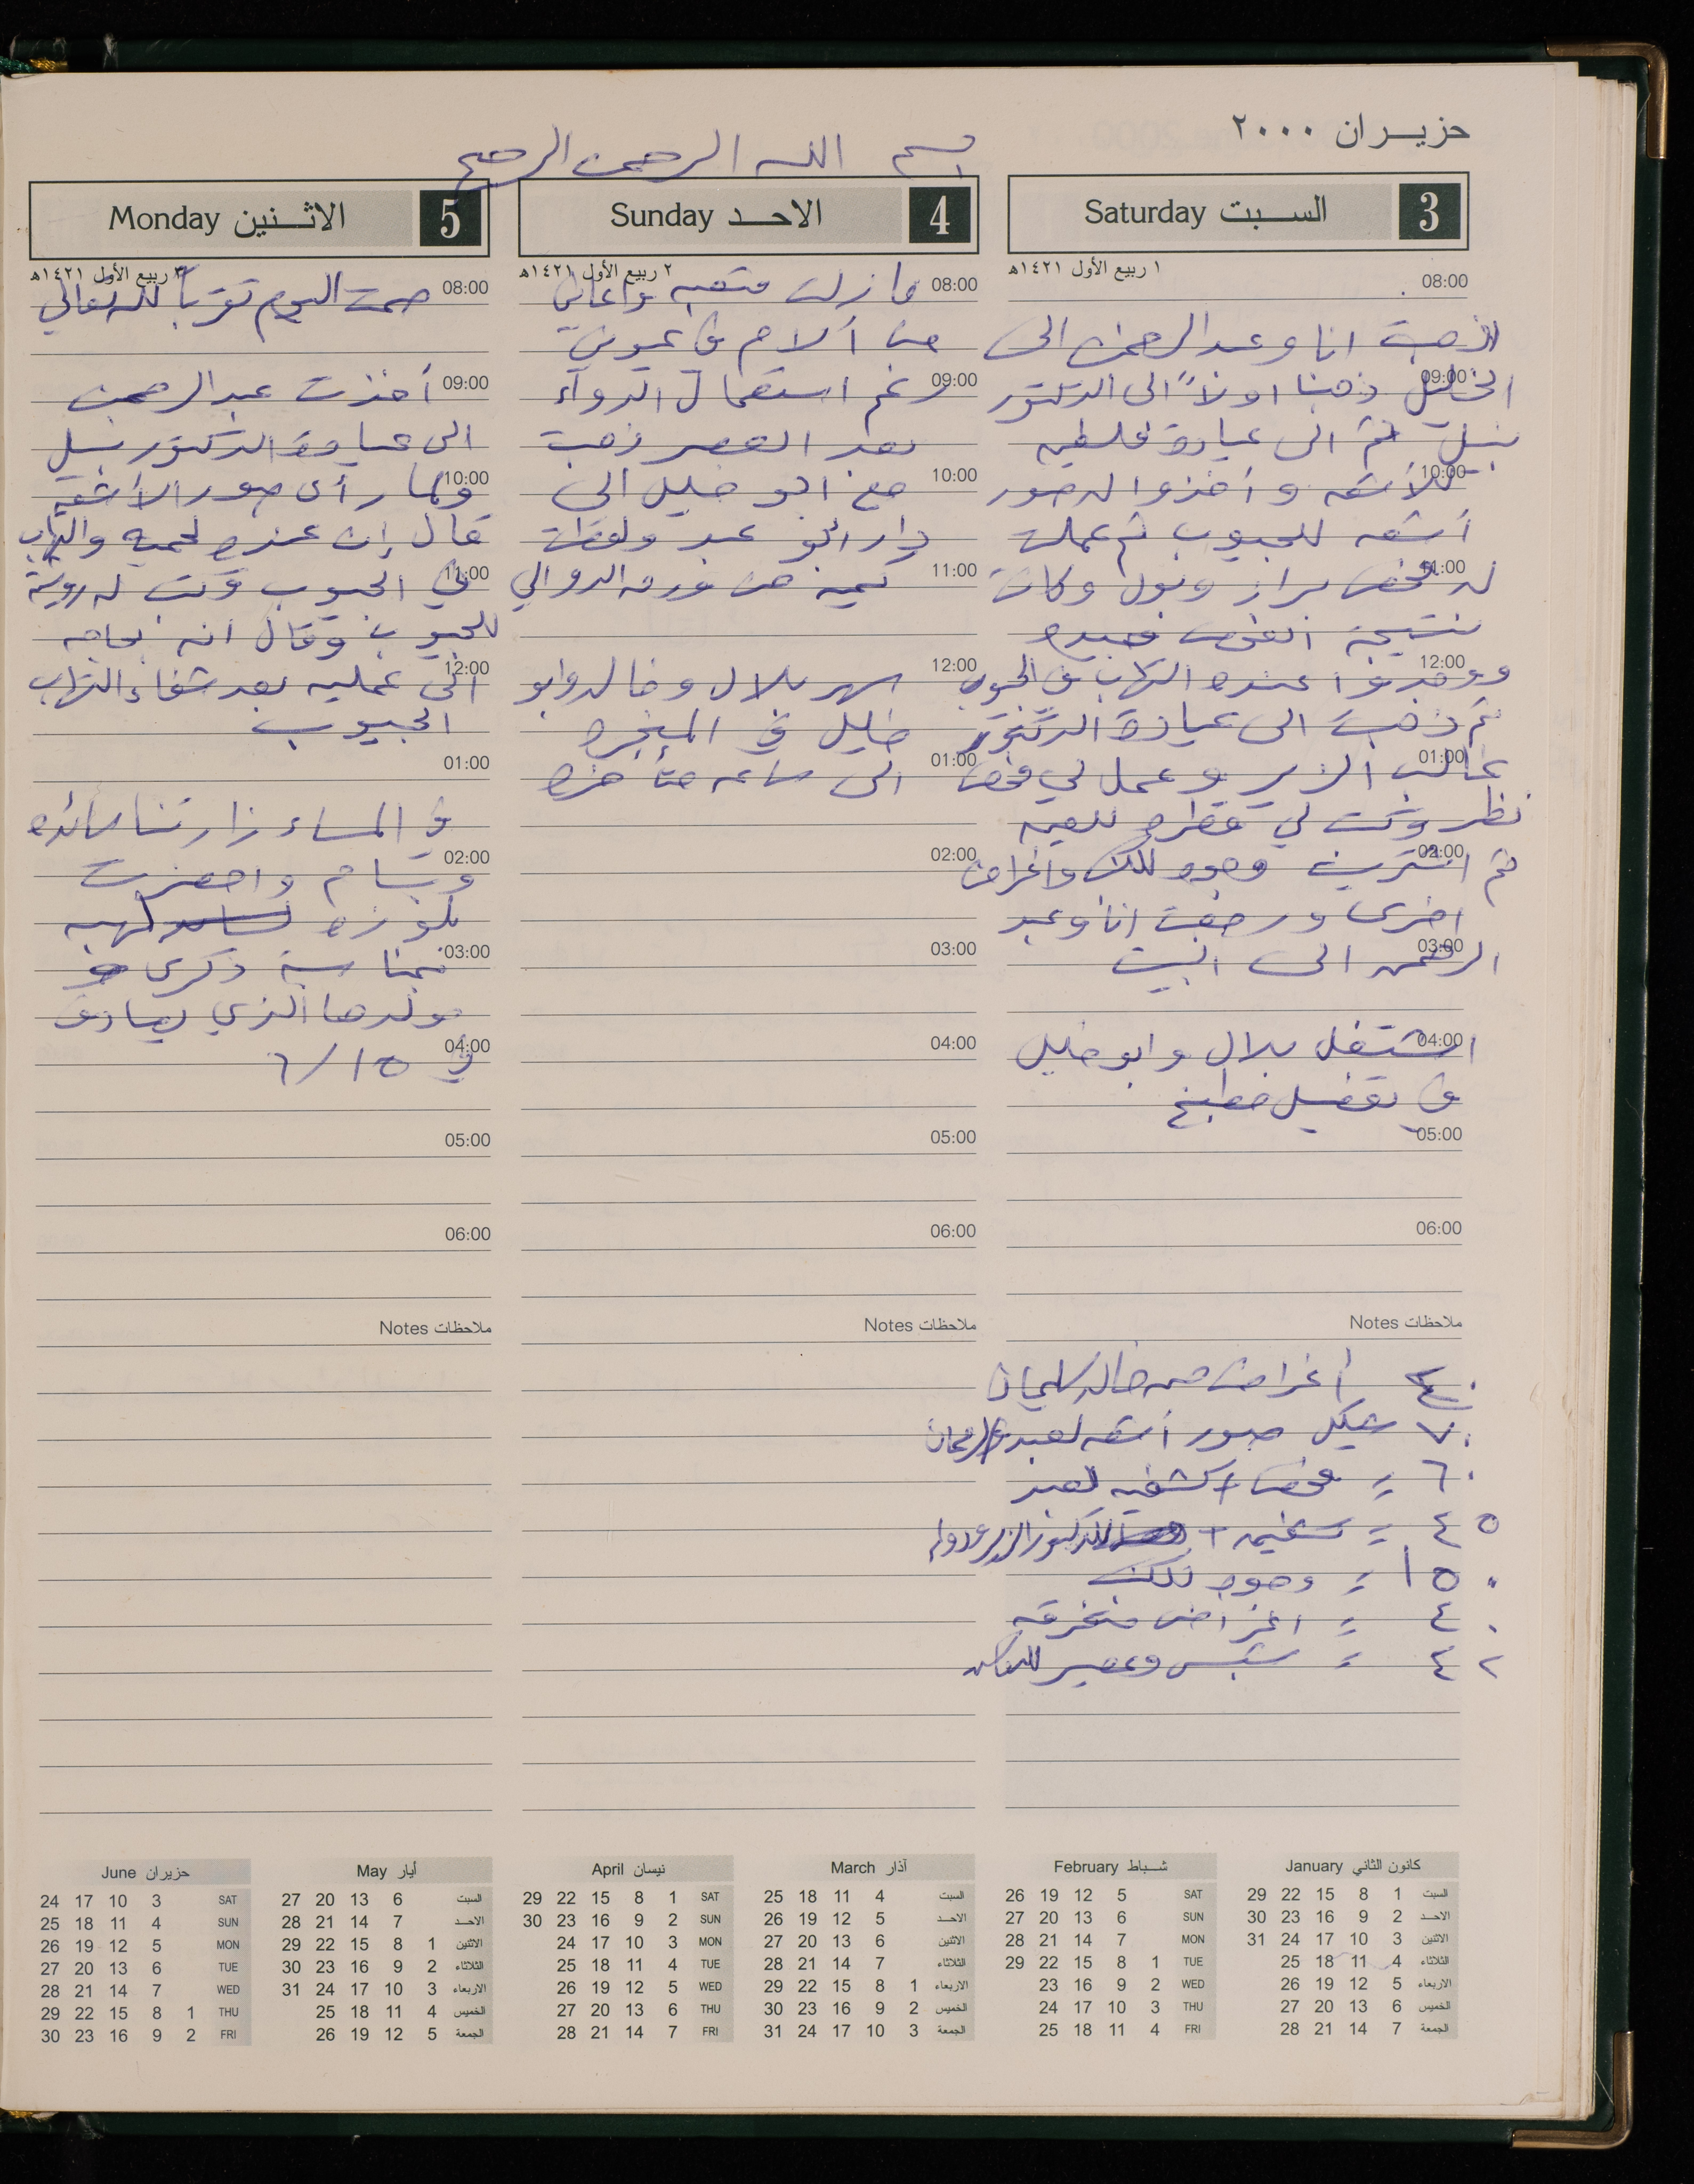 حزيران ٢٠٠٠
بسم الله الرحمن الرحيم
3 السبت Saturday
١ ربيع الأول ١٤٢١هـ
08:00
ذهبت انا وعبد الرحمن الى
09:00
الخليل ذهبنا اولاً الى الدكتور
نبيل ثم الى عيادة فلسطين
10:00
للأشعه وأخذوا له صور
أشعه للجيوب ثم عملت
11:00
له فحص براز وبول وكانت
نتيجة الفحص جيده
12:00
ووجدوا عنده التهاب في الجيوب
ثم ذهبت الى عيادة الدكتور
01:00
غالب الزير وعمل لي فحص
نظر وكتب لي قطره للعين
02:00
ثم اشتريت وجوه للكنب واغراض
اخرى ورجعت انا وعبد
03:00
الرحمن الى البيت
04:00
اشتغل بلال وابو خليل
في تفصيل مطبخ
05:00
06:00
ملاحظات Notes
٤٠ أغراض من خالد سليمان
٧٠ شيكل صور أشعه لعبد الرحمان
٦٠ = فحص + كشفيه لعبد
٤٥ = للدكتور الزير
١٥٠ = وجوه للكنب
٤٠ = اغراض متفرقه
٤٢ = شبس وعصير
4 الاحد Sunday
٢ ربيع الأول ١٤٢١هـ
08:00
ما زلت متعبه واعاني
من آلام في عيوني
09:00
رغم استعمال الدواء
بعد العصر ذهبت
10:00
مع ابو خليل الى
دار ابو عبد ولقطت
11:00
كميه من ورق الدوالي
12:00
سهر بلال وخالد وابو
خليل في المنجره
01:00
الى ساعه متأخره
02:00
03:00
04:00
05:00
06:00
ملاحظات Notes
5 الاثنين Monday
٣ ربيع الأول ١٤٢١هـ
08:00
صمت اليوم تقرباً لله تعالى
09:00
أخذت عبد الرحمن
الى عيادة الدكتور نبيل
10:00
ولما رأى صور الأشعه
قال إن عنده لحميه والتهاب
11:00
في الجيوب وكتب له روشتة
للجيوب وقال انه بحاجه
12:00
الى عمليه بعد شفاء التهاب
الجيوب
01:00
في المساء زارتنا رائده
02:00
وبسام واحضرت
بلوزه لهبه
03:00
بمناسبة ذكرى
مولدها الذي يصادف
04:00
في ٦/١٥
05:00
06:00
ملاحظات Notes
كانون الثاني January
السبت 1 8 15 22 29
الاحد 2 9 16 23 30
الاثنين 3 10 17 24 31
الثلاثاء 4 11 18 25
الاربعاء 5 12 19 26
الخميس 6 13 20 27
الجمعة 7 14 21 28
شباط February
SAT 5 12 19 26
SUN 6 13 20 27
MON 7 14 21 28
TUE 1 8 15 22 29
WED 2 9 16 23
THU 3 10 17 24
FRI 4 11 18 25
آذار March
السبت 4 11 18 25
الاحد 5 12 19 26
الاثنين 6 13 20 27
الثلاثاء 7 14 21 28
الاربعاء 1 8 15 22 29
الخميس 2 9 16 23 30
الجمعة 3 10 17 24 31
نيسان April
SAT 1 8 15 22 29
SUN 2 9 16 23 30
MON 3 10 17 24
TUE 4 11 18 25
WED 5 12 19 26
THU 6 13 20 27
FRI 7 14 21 28
أيار May
السبت 6 13 20 27
الاحد 7 14 21 28
الاثنين 1 8 15 22 29
الثلاثاء 2 9 16 23 30
الاربعاء 3 10 17 24 31
الخميس 4 11 18 25
الجمعة 5 12 19 26
حزيران June
SAT 3 10 17 24
SUN 4 11 18 25
MON 5 12 19 26
TUE 6 13 20 27
WED 7 14 21 28
THU 1 8 15 22 29
FRI 2 9 16 23 30